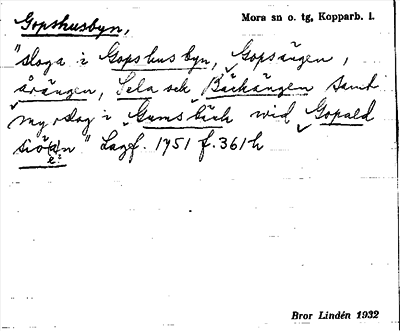 Gopshusbyn,
Mora sn o. tg, Kopparb. l.
"sloga i Gopshusbyn, Gopsängen,
årängen, Sela och Bäckängen samt
myrslog i Gumsbäck wid Gopald
siön" Lagf. 1751 f. 361 h
e?
Bror Lindén 1932